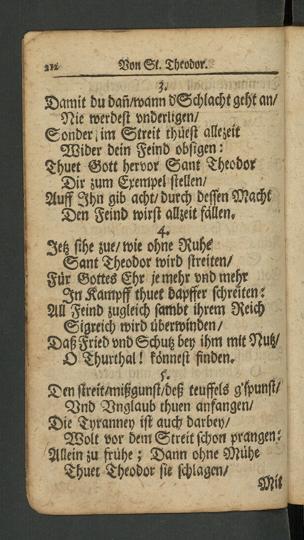 212 Von St. Theodor.
3.
Damit du dañ/wann d'Schlacht geht an/
Nie werdest vnderligen/
Sonder/im Streit thüest allezeit
Wider dein Feind obsigen:
Thuet Gott hervor Sant Theodor
Dir zum Exempel stellen/
Auff Ihn gib acht/durch dessen Macht
Den Feind wirst allzeit fällen.
4.
Jetz sihe zue/wie ohne Ruhe
Sant Theodor wird streiten/
Für Gottes Ehr je mehr vnd mehr
In Kampff thuet dapffer schreiten:
All Feind zugleich sambt ihrem Reich
Sigreich wird überwinden/
Daß Fried vnd Schutz bey ihm mit Nutz/
O Thurthal! könnest finden.
5.
Den streit/mißgunst/deß teuffels g'spunst/
Vnd Vnglaub thuen anfangen/
Die Tyranney ist auch darbey/
Wolt vor dem Streit schon prangen:
Allein zu frühe; Dann ohne Mühe
Thuet Theodor sie schlagen/
Mit